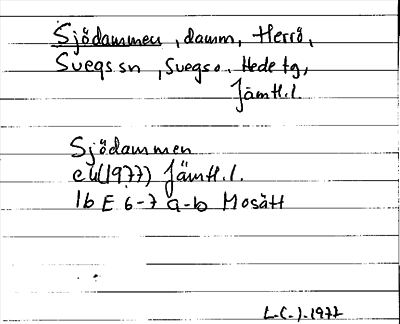 Sjödammen, damm, Herrö,
Svegs sn, Svegs o. Hede tg,
Jämtl.l.
Sjödammen
ek(1977) Jämtl.l.
16 E 6-7 a-b Mosätt
L.(-).1977